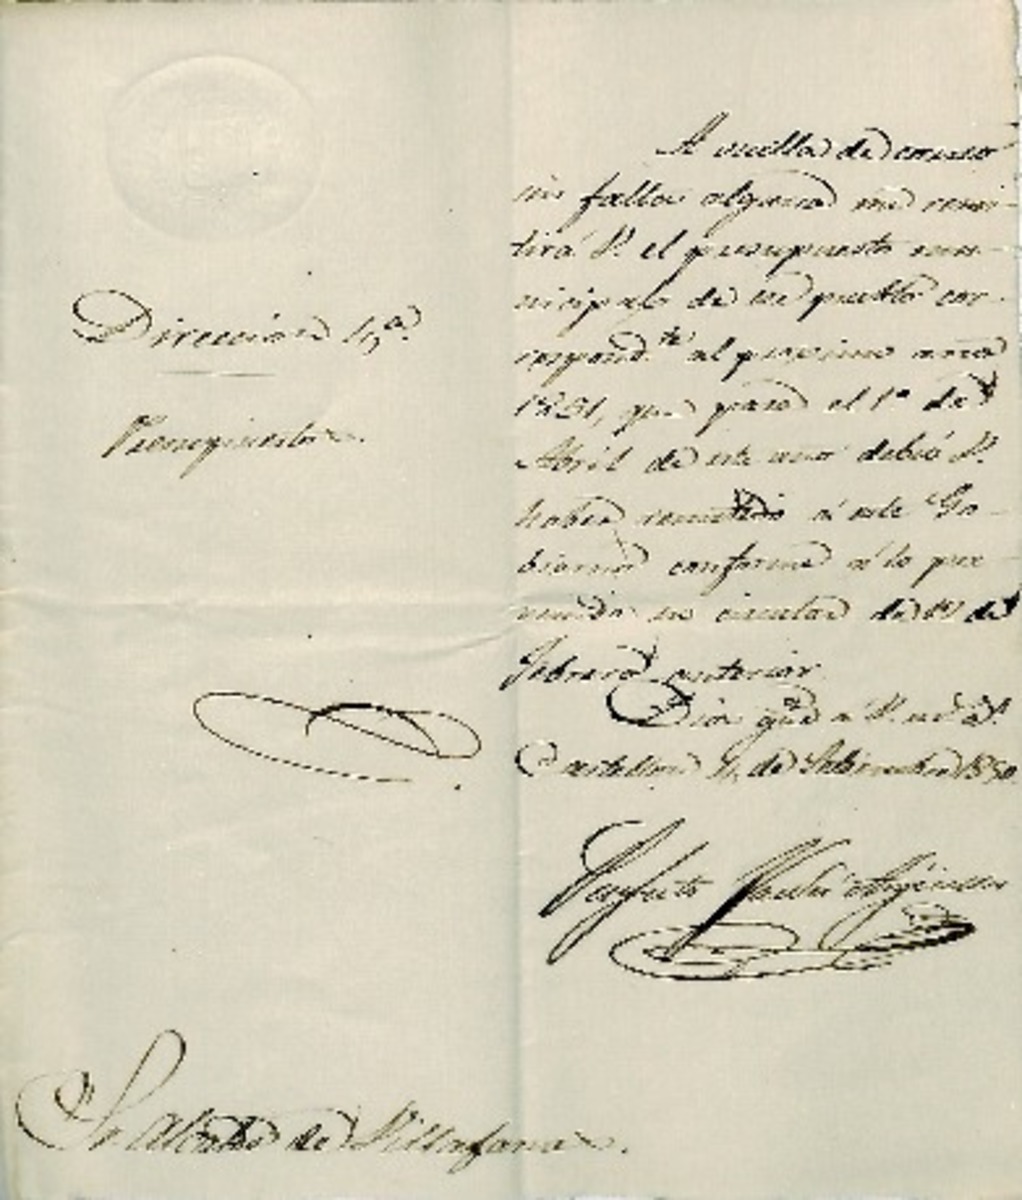 Direccion 4ª.
Presupuestos.
A vuelta de correo
sin falta alguna me remi-
tirá V. el presupuesto mu-
nicipal de ese pueblo cor-
respond.te al proximo año
1851, que para el 1º de
Abril de este año debió V.
haber remitido á este Go-
bierno conforme á lo pre-
venido en circular de de
Febrero anterior.
Dios gue á V. ms. as.
Castellon 4 de Setiembre 1850.
Perfecto
Sr Alcalde de Villafamé.